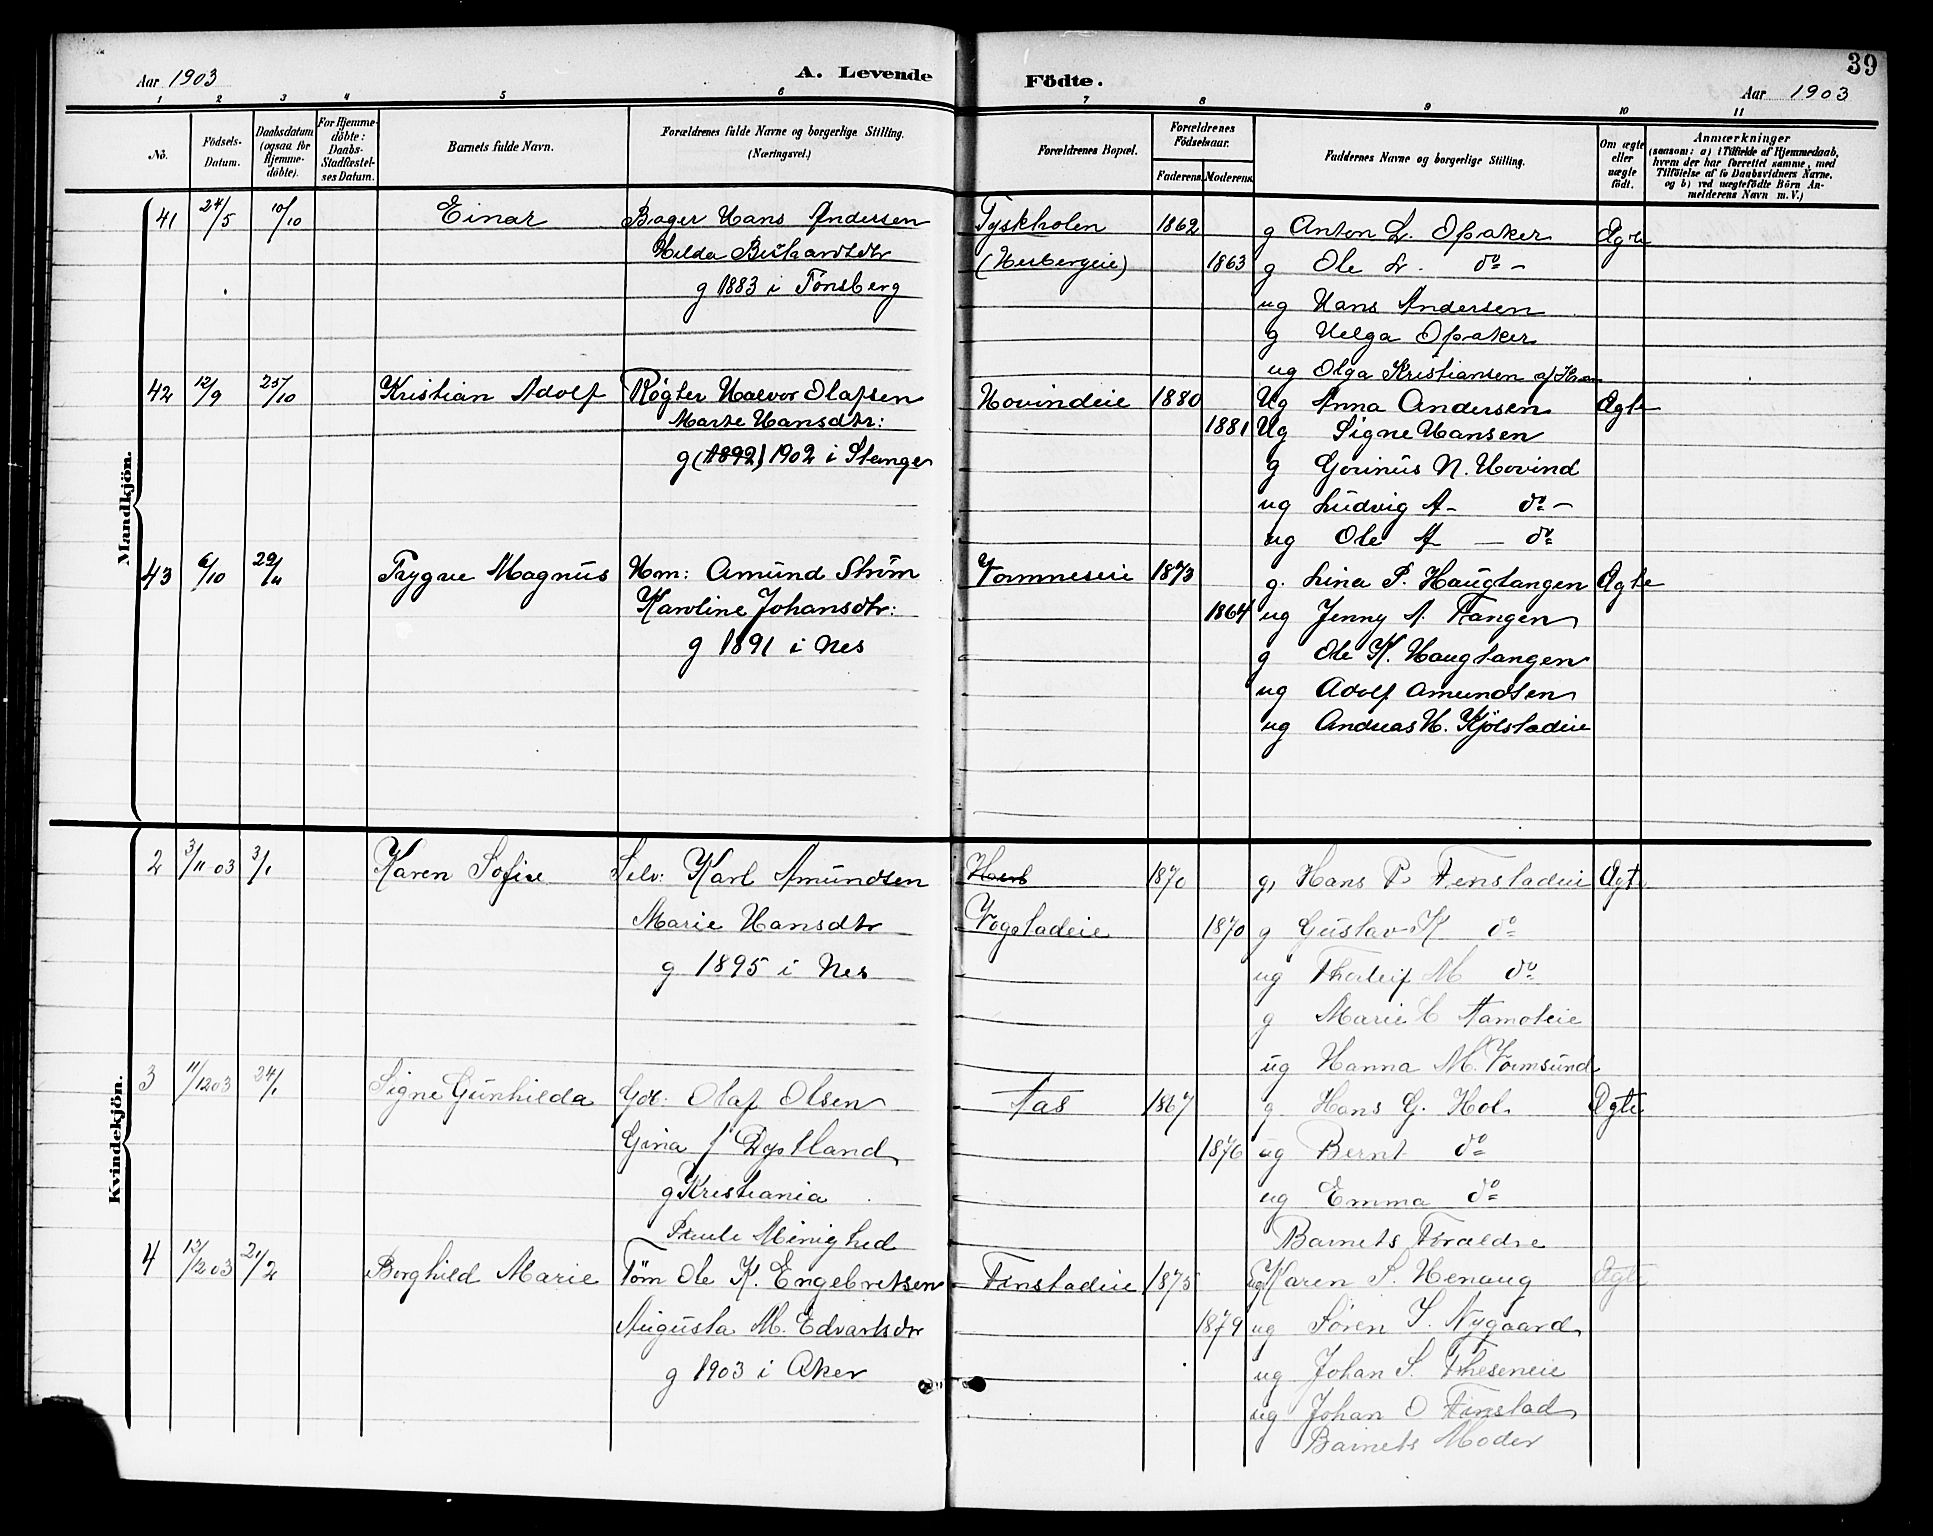 39
Aar 1903
A. Levende Födte.
Aar 1903
1 2 3 4 5 6 7 8 9 10 11
No.
Födsels-Datum.
Daabsdatum (ogsaa for Hjemme-döbte).
For Hjemme-döbte: Daabs-Stadfæstel-ses Datum.
Barnets fulde Navn.
Forældrenes fulde Navne og borgerlige Stilling.
(Næringsvei.)
Forældrenes Bopæl.
Forældrenes Födselsaar.
Faderens. Moderens.
Faddernes Navne og borgerlige Stilling.
Om ægte eller uægte födt.
Anmærkninger
(saasom: a) i Tilfælde af Hjemmedaab,
hvem der har forrettet samme, med
Tilföielse af to Daabsvidners Navne.
og b) ved uægtefödte Börn An-
melderens Navn m. V.)
Mandkjön.
41 24/5 10/10 Einar Bager Hans Andersen Tyskholen 1862 g Anton L. Opaker Ægte
Hilda (Herbergeie) 1863 g Ole L. do -
g 1883 i Tönsberg
ug Hans Andersen
g Helga Opaker
ug Olga Kristiansen af
42 12/9 25/10 Kristian Adolf Røgter Halvor Olafsen Hovindeie 1880 Ug Anna Andersen Ægte
Marte Hansdtr: 1881 Ug Signe Hansen
g (1892) 1902 i Stange g Gorinus N. Hovind
ug Ludvig A- do -
ug Ole A — do
43 6/10 29/11 Trygve Magnus Hm: Amund Strøm Vormneseie 1873 g. Lina P. Haugtangen Ægte
Karoline Johansdtr: 1864 ug Jenny A. Tangen
g 1891 i Nes g Ole K. Haugtangen
ug Adolf Amundsen
ug Andreas H. Kjölstadeie
Kvindekjön.
2 3/11 03 3/1 Karen Sofie Selv: Karl Amundsen 1870 g, Hans P. Finstadeie Ægte
Marie Hansdtr Vogstadeie 1870 g Gustav K do
g 1895 i Nes ug Thorleif M do
g Marie C
ug Hanna M. Vormsund
3 11/12 03 24/1 Signe Gunhilda Gdr: Olaf Olsen Aas 1867 g Hans G. Hol Ægte
Gina f Dystland 1876 ug Bernt do
g Kristiania ug Emma do
Paule Minighed Barnets Forældre
4 13/12 03 21/2 Borghild Marie Töm Ole K. Engebretsen Finstadeie 1875 ug Karen S. Henaug Ægte
Augusta M. Edvartsdtr 1879 ug Sören S. Nygaard
g 1903 i Aker ug Johan S. Theseneie
ug Johan O Finstad
Barnets Moder